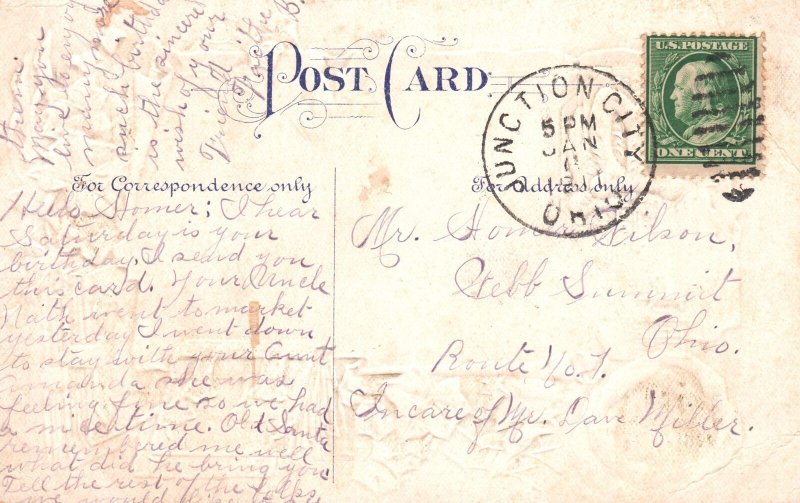 POST CARD
For Correspondence only
For Address only
U.S. POSTAGE
ONE CENT
JUNCTION CITY
5 PM
JAN
OHIO
Hello Homer; I hear
Saturday is your
birthday. I send you
this card. Your Uncle
Nath went to market
yesterday I went down
to stay with your Aunt
Amanda she was
feeling fine so we had
a nice time. Old Santa
remembered me well
what did he bring you
Tell the rest of the folks
we would like
them.
May you
live to enjoy
many more
such birthdays
is the sincere
wish of your
Friend
B.
Mr. Homer Wilson,
Webb Summit
Ohio.
Route No. 1.
In care of Mr. Dave Miller.